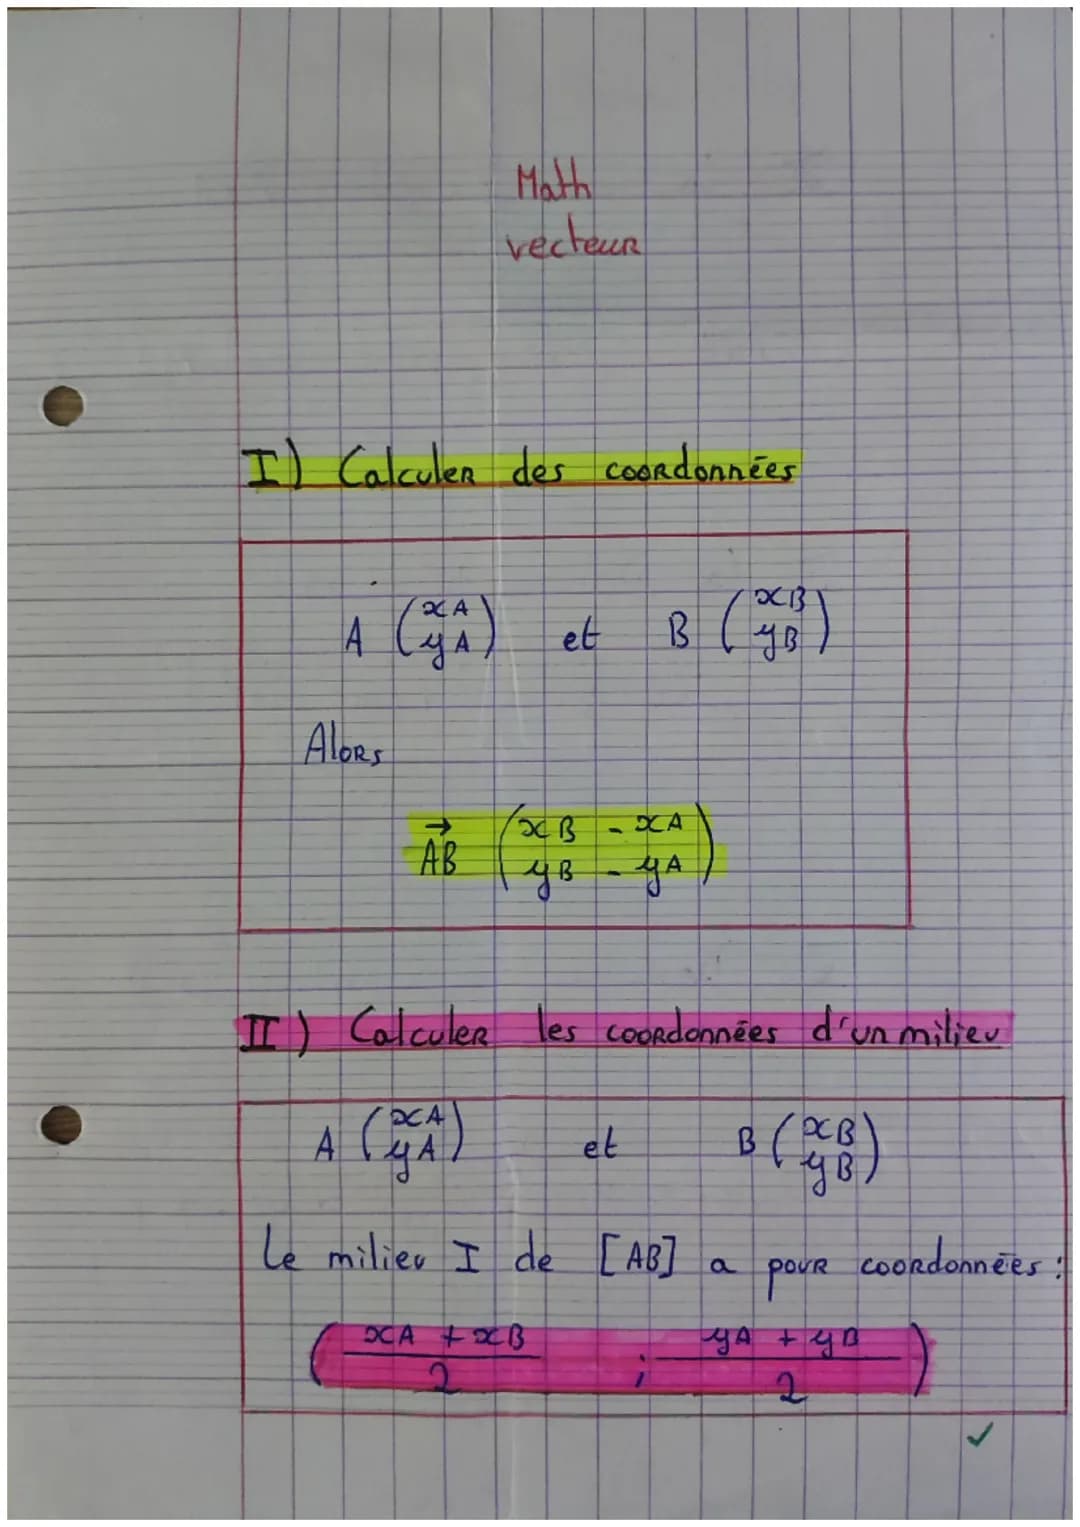 Math
vecteur
I) Calculer des coordonnées
A (xA yA) et B (xB yB)
Alors
→
AB (xB - xA
yB - yA)
II) Calculer les coordonnées d'un milieu
A (xA yA) et B (xB yB)
Le milieu I de [AB] a pour coordonnées :
(xA + xB / 2 ; yA + yB / 2)
✓